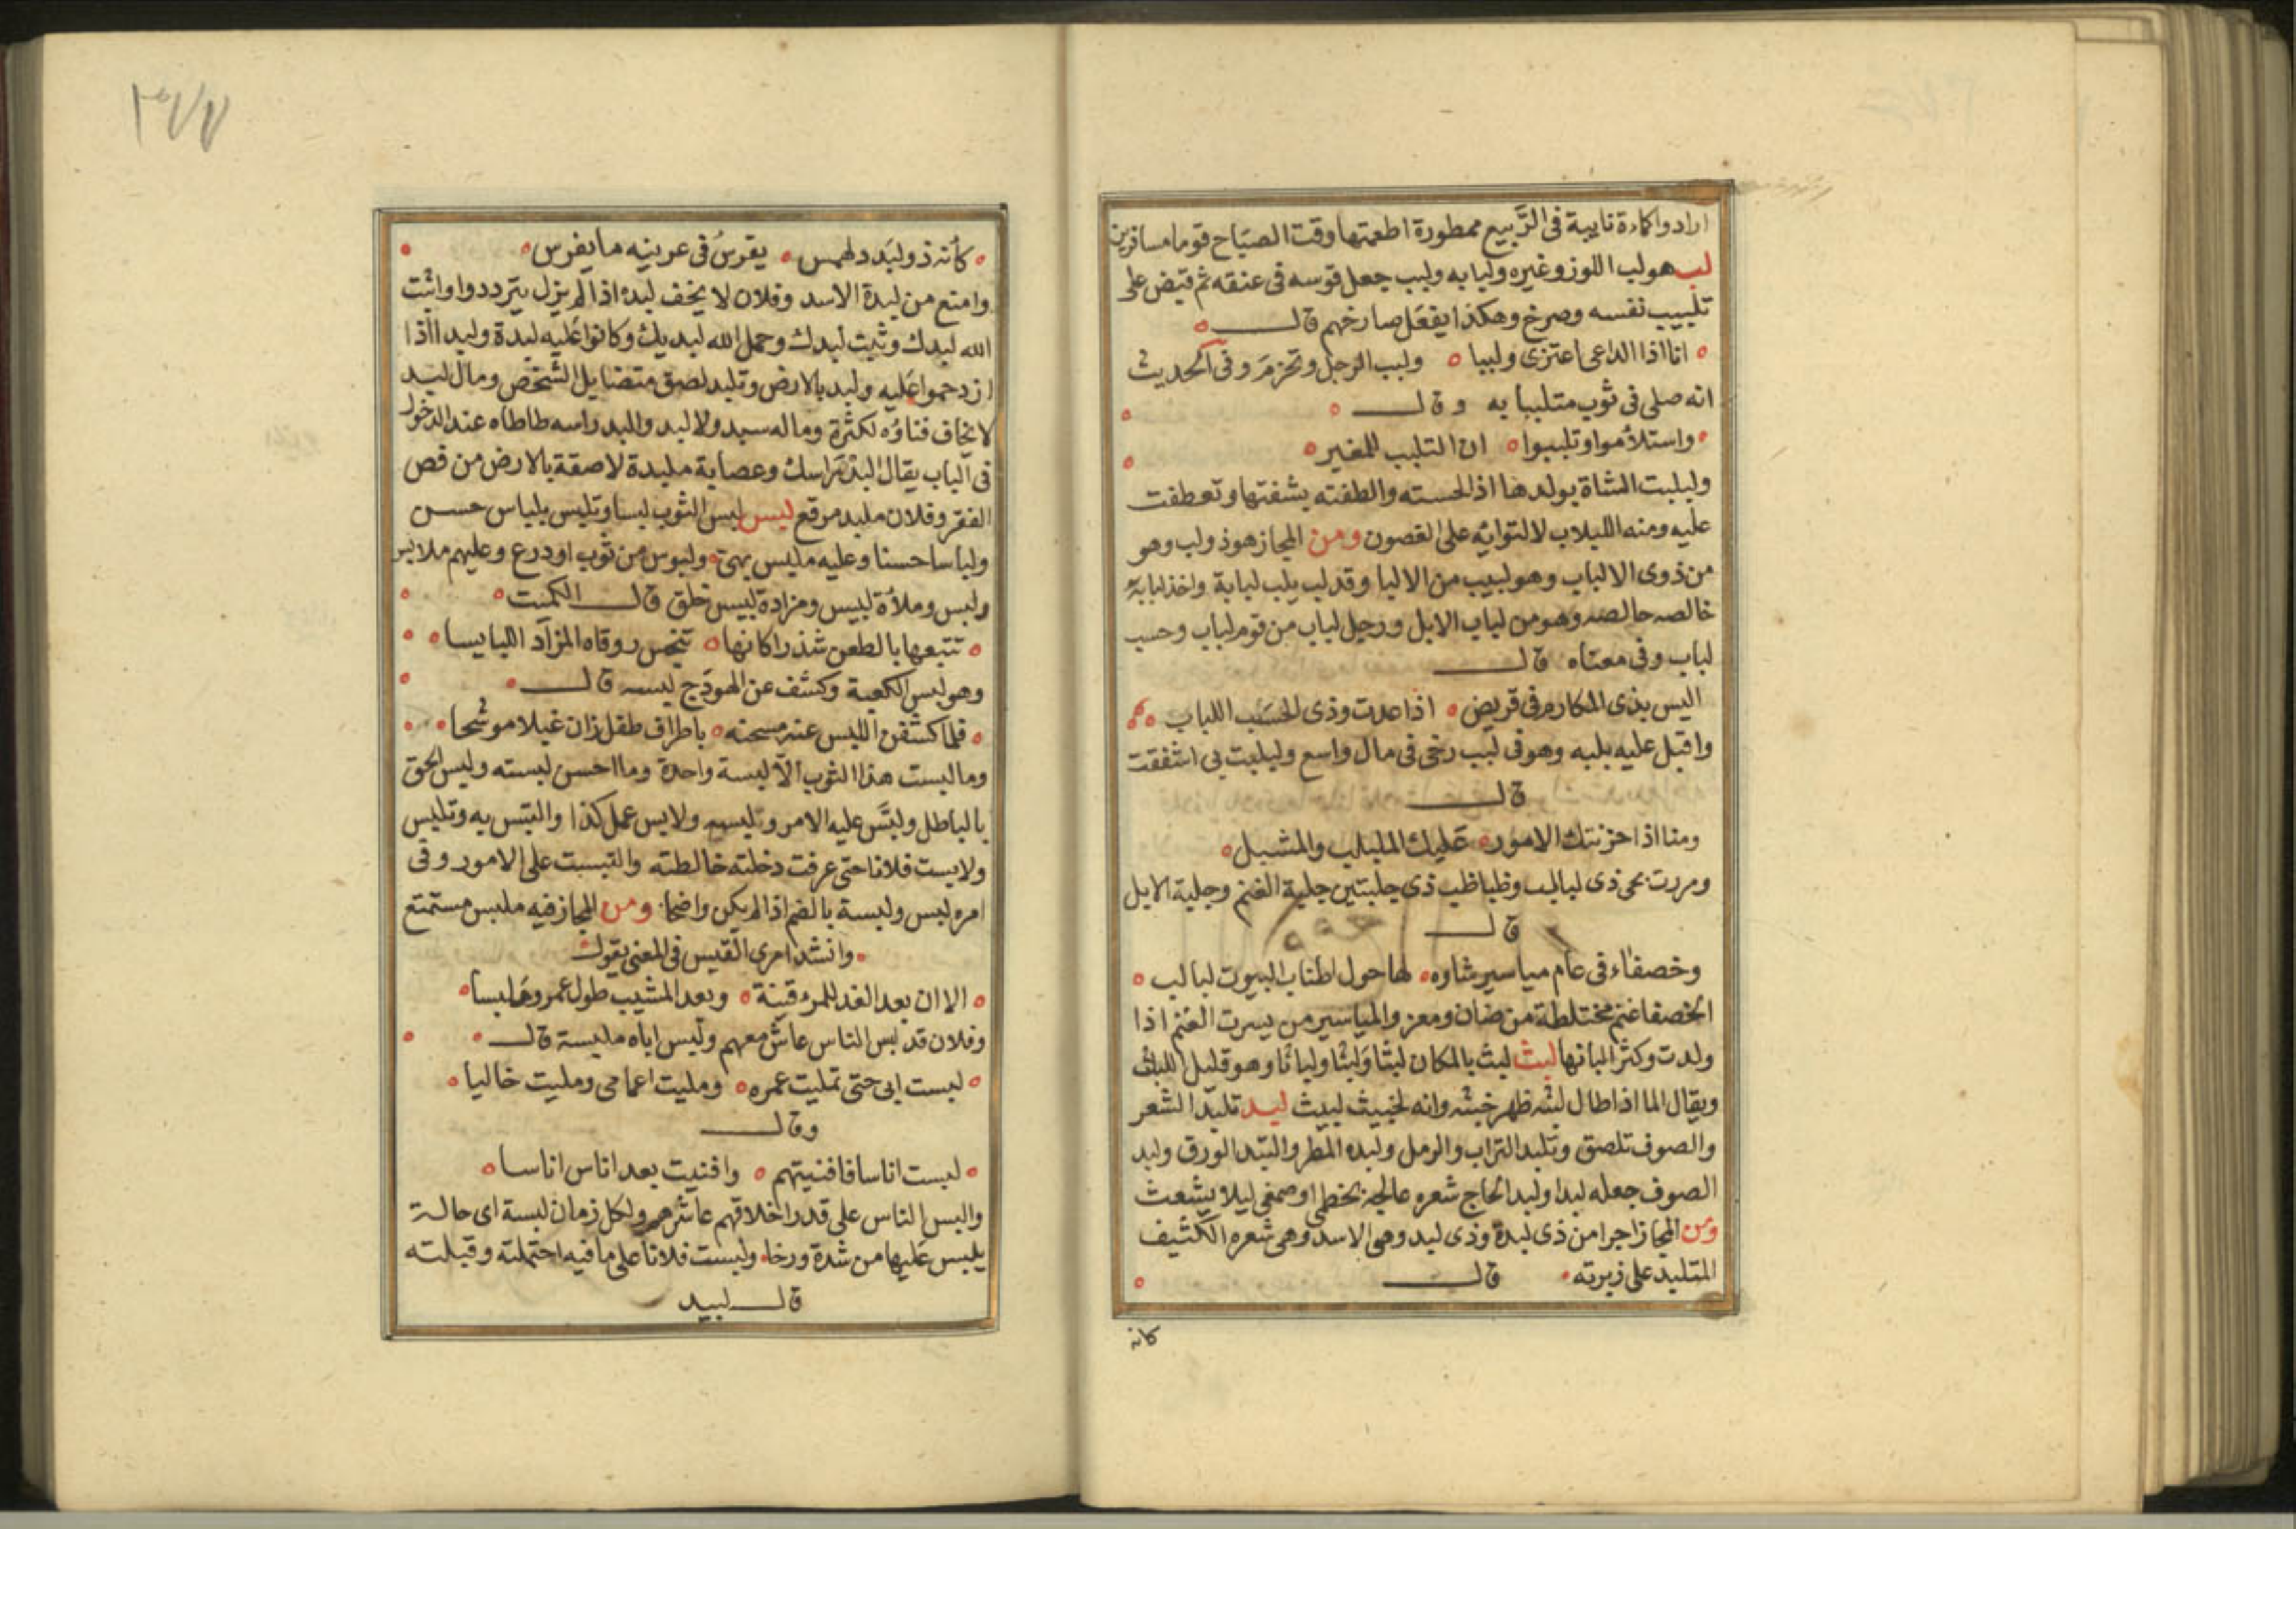 ارادوا كماءة نايبة فى الرَّبيع ممطورة اطعمتها وقت الصبَاح قوما مسافرين
لب هو لب اللوز وغيره ولبابه ولبب جعل قوسه فى عنقه ثم قبض على
تلبيب نفسه وصرخ وهكذا يفعَل صارخهم قال
انا اذا الداعى اعتزى ولببا ولبب الرجل وتحزمَ وفى الحديث
انه صلى فى ثوب متلببا به وقال
واستلأموا وتلببوا ان التلبب للمغير
ولبلبت الشاة بولدها اذا لحسته والطفته بشفتها وتعطفت
عليه ومنه اللبلاب لالتوائه على الغصون ومن المجاز هو ذو لب وهو
من ذوى الالباب وهو لبيب من الالبا وقد لب يلب لبابة واخذ لبابه
خالصه وهو من لباب الابل ورجل لباب من قوم لباب وحسب
لباب وفى معناه قال
اليس بذى المكارم فى قريض اذا عدت وذى الحسَب اللباب
واقبل عليه بلبه وهو فى لبب رخى فى مال واسع ولبلبت بى اشفقت
قال
ومنا اذا حزبتك الامور عَليك الملبلب والمشبل
ومررت بحى ذى لبالب وظباظب ذى جلبتين جلبة الغنم وجلبة الابل
قال
وخصفاء فى عام مياسير شاوه لها حول اطناب البيوت لبالب
الخصفا غنم مختلطة من ضان ومعز والمياسير من يسرت الغنم اذا
ولدت وكثر البانها لبث لبث بالمكان لبثا وَلبْثا ولباثا وهو قليل اللباث
ويقال الما اذا طال لبثه ظهر خبثه وانه لخبيث لبيث لبد تلبّد الشعر
والصوف تلصق وتلبد التراب والرمل ولبده المطر والتبّد الورق ولبد
الصوف جعله لبدا ولبد الحاج شعره عالجه بخطمى او صمغى ليلا يشعث
ومن المجاز اجرا من ذى لبدة وذى لبد وهى الاسد وهى شعره الكثيف
المتلبد على زبرته قال
كانه
٣٧٧
كأنه ذو لبَد دلهمس يقرسُ فى عرينه ما يفرس
وامنع من لبدة الاسد وفلان لا يخف لبده اذا لم يزل يتردد واثبت
الله لبدك وثبت لبدك وحمل الله لبديك وكانوا عَليه لبدة ولبدا اذا
ازدحموا عَليه ولبد بالارض وتلبد لصق متضايل الشخص ومال لبد
لا يخاف فناؤه لكثرة وما له سبد ولا لبد والبد راسه طاطاه عند الدخول
فى الباب يقال البد راسك وعصابة ملبدة لاصقة بالارض من
الفقر وفلان ملبد مرقع لبس لبس الثوب لبسا وتلبس بلباس حسن
ولباسا حسنا وعليه ملبس بهى ولبوس من ثوب او درع وعليهم ملابس
ولبس وملأة لبيس ومزادة لبيس خلق قال الكميت
تتبعها بالطعن شذرا كانها روقاه المزاد اللبايسا
وهو لبس الكعبة وكشف عن الهودَج لبسه قال
فلما كشفن اللبس عنه مسحنه باطراف طفل زان غيلا موشحا
وما لبست هذا الثوب الا لبسة واحدة وما احسن لبسته ولبس الحق
بالباطل ولبَّس عليه الامر وتلبس ولابس عمل كذا والتبس به وتلبس
ولابست فلانا حتى عرفت دخلته خالطته والتبست على الامور وفى
امره لبس ولبسة بالضم اذا لم يكن واضحا ومن المجاز فيه ملبس مستمتع
وانشد امرى القيس فى المعنى يقول
الا ان بعد الغد للمرء قينة وبعد المشيب طول عمر وملبسا
وفلان قد لبس الناس عاش معهم ولبس اباه ملبسة قال
لبست ابى حتى تمليت عمره ومليت اعمامى ومليت خاليا
وقال
لبست اناسا فافنيتهم وافنيت بعد اناس اناسا
والبس الناس على قدر اخلاقهم عاشرهم ولكل زمان لبسة اى حالة
يلبس عَليها من شدة ورخا ولبست فلانا على ما فيه احتملته وقبلته
قال لبيد